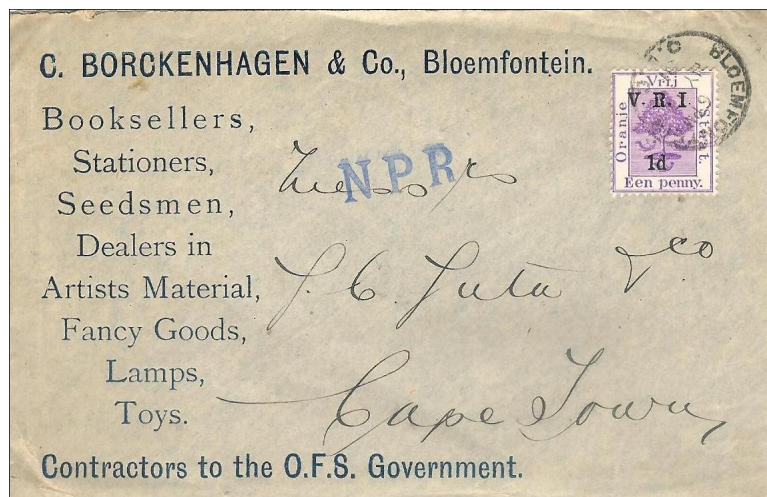 C. BORCKENHAGEN & Co., Bloemfontein.
Booksellers,
Stationers,
Seedsmen,
Dealers in
Artists Material,
Fancy Goods,
Lamps,
Toys.
Contractors to the O.F.S. Government.
NPR
Messrs
J. C. Juta & Co
Cape Town
BLOEMFO
Vrij
Oranje
Staat.
V. R. I.
1d
Een penny.